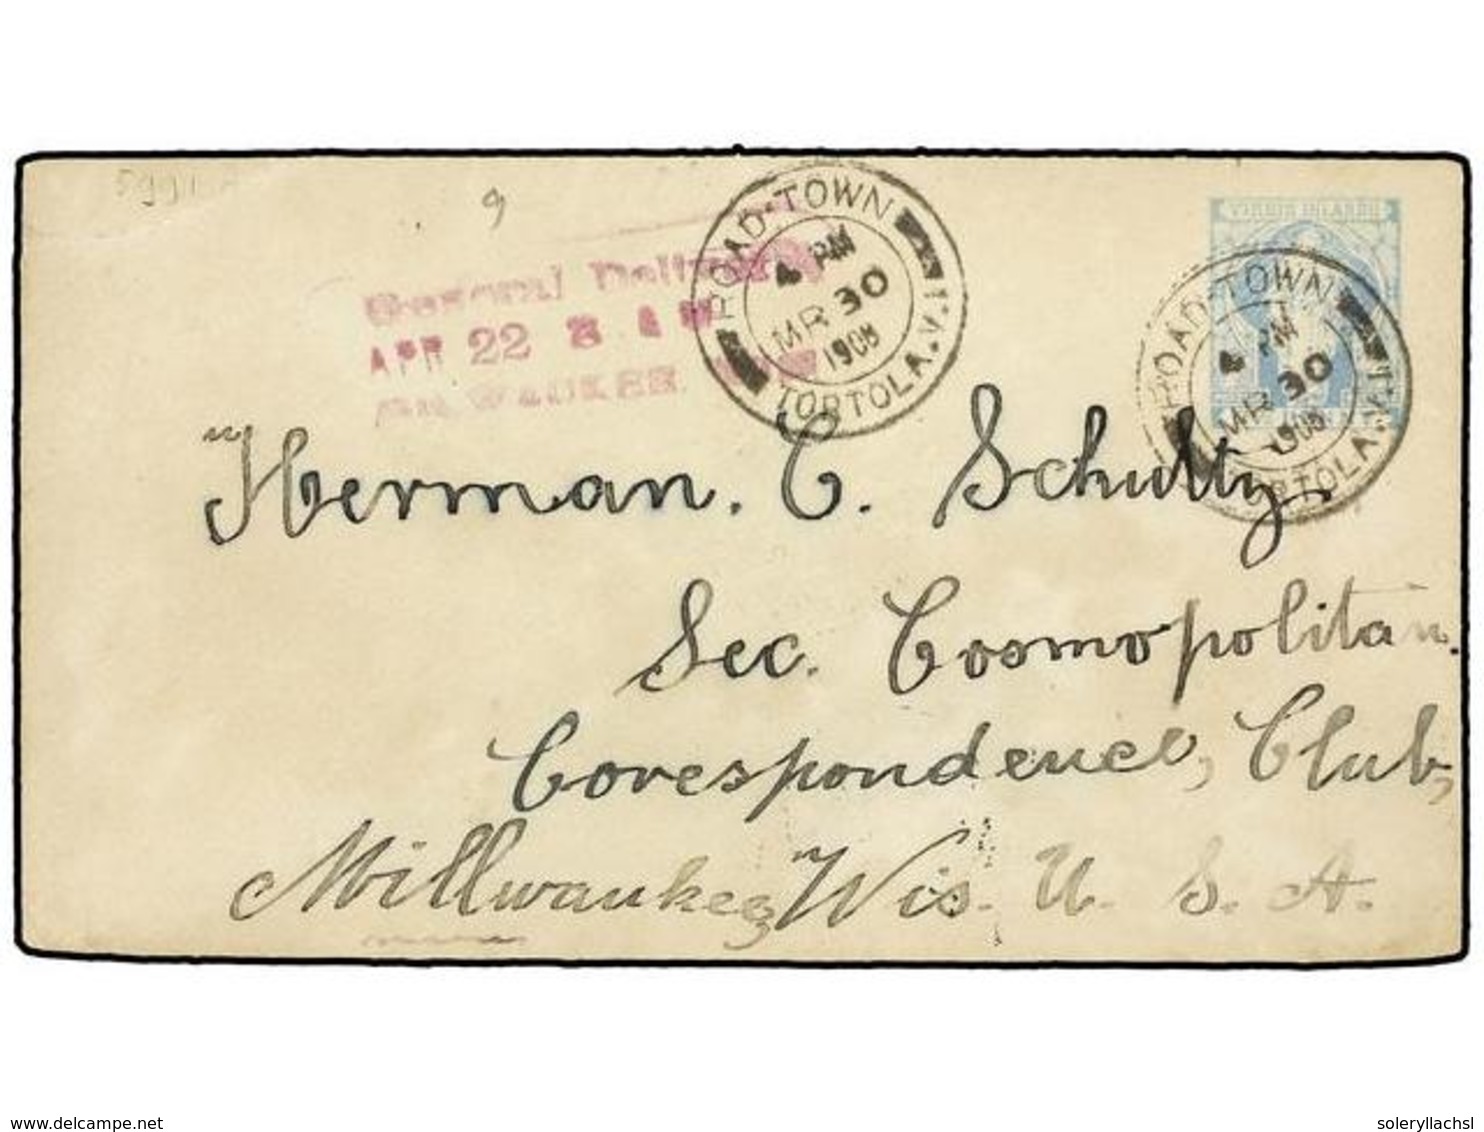 9
VIRGIN ISLANDS
ROAD-TOWN
4 PM
MR 30
1908
TORTOLA.V.I.
ROAD-TOWN
4 PM
MR 30
1908
TORTOLA.V.I.
General Delivery
APR 22 8 AM
MILWAUKEE
Herman. C. Schultz,
Sec. Cosmopolitan.
Corespondence, Club,
Millwaukee, Wis. U. S. A.
www.delcampe.net
soleryllachsl